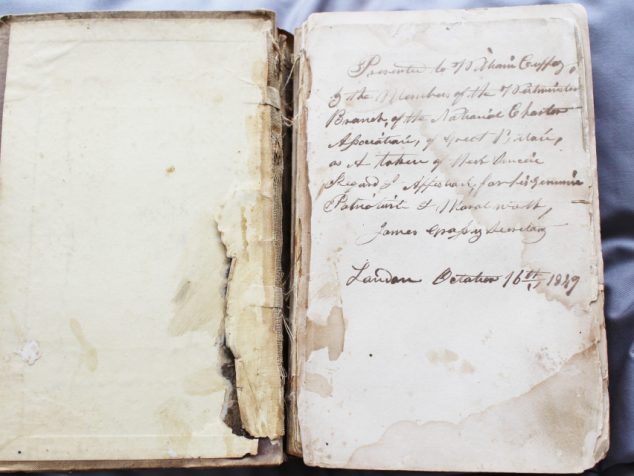 Presented to William Cuffay
by the Members of the Westminster
Branch, of the National Charter
Association, of Great Britain,
as A token of their Sincere
Regard & Affection, for his genuine
Patriotism & Moral worth,
James Grassby Secretary
London October 16th 1849